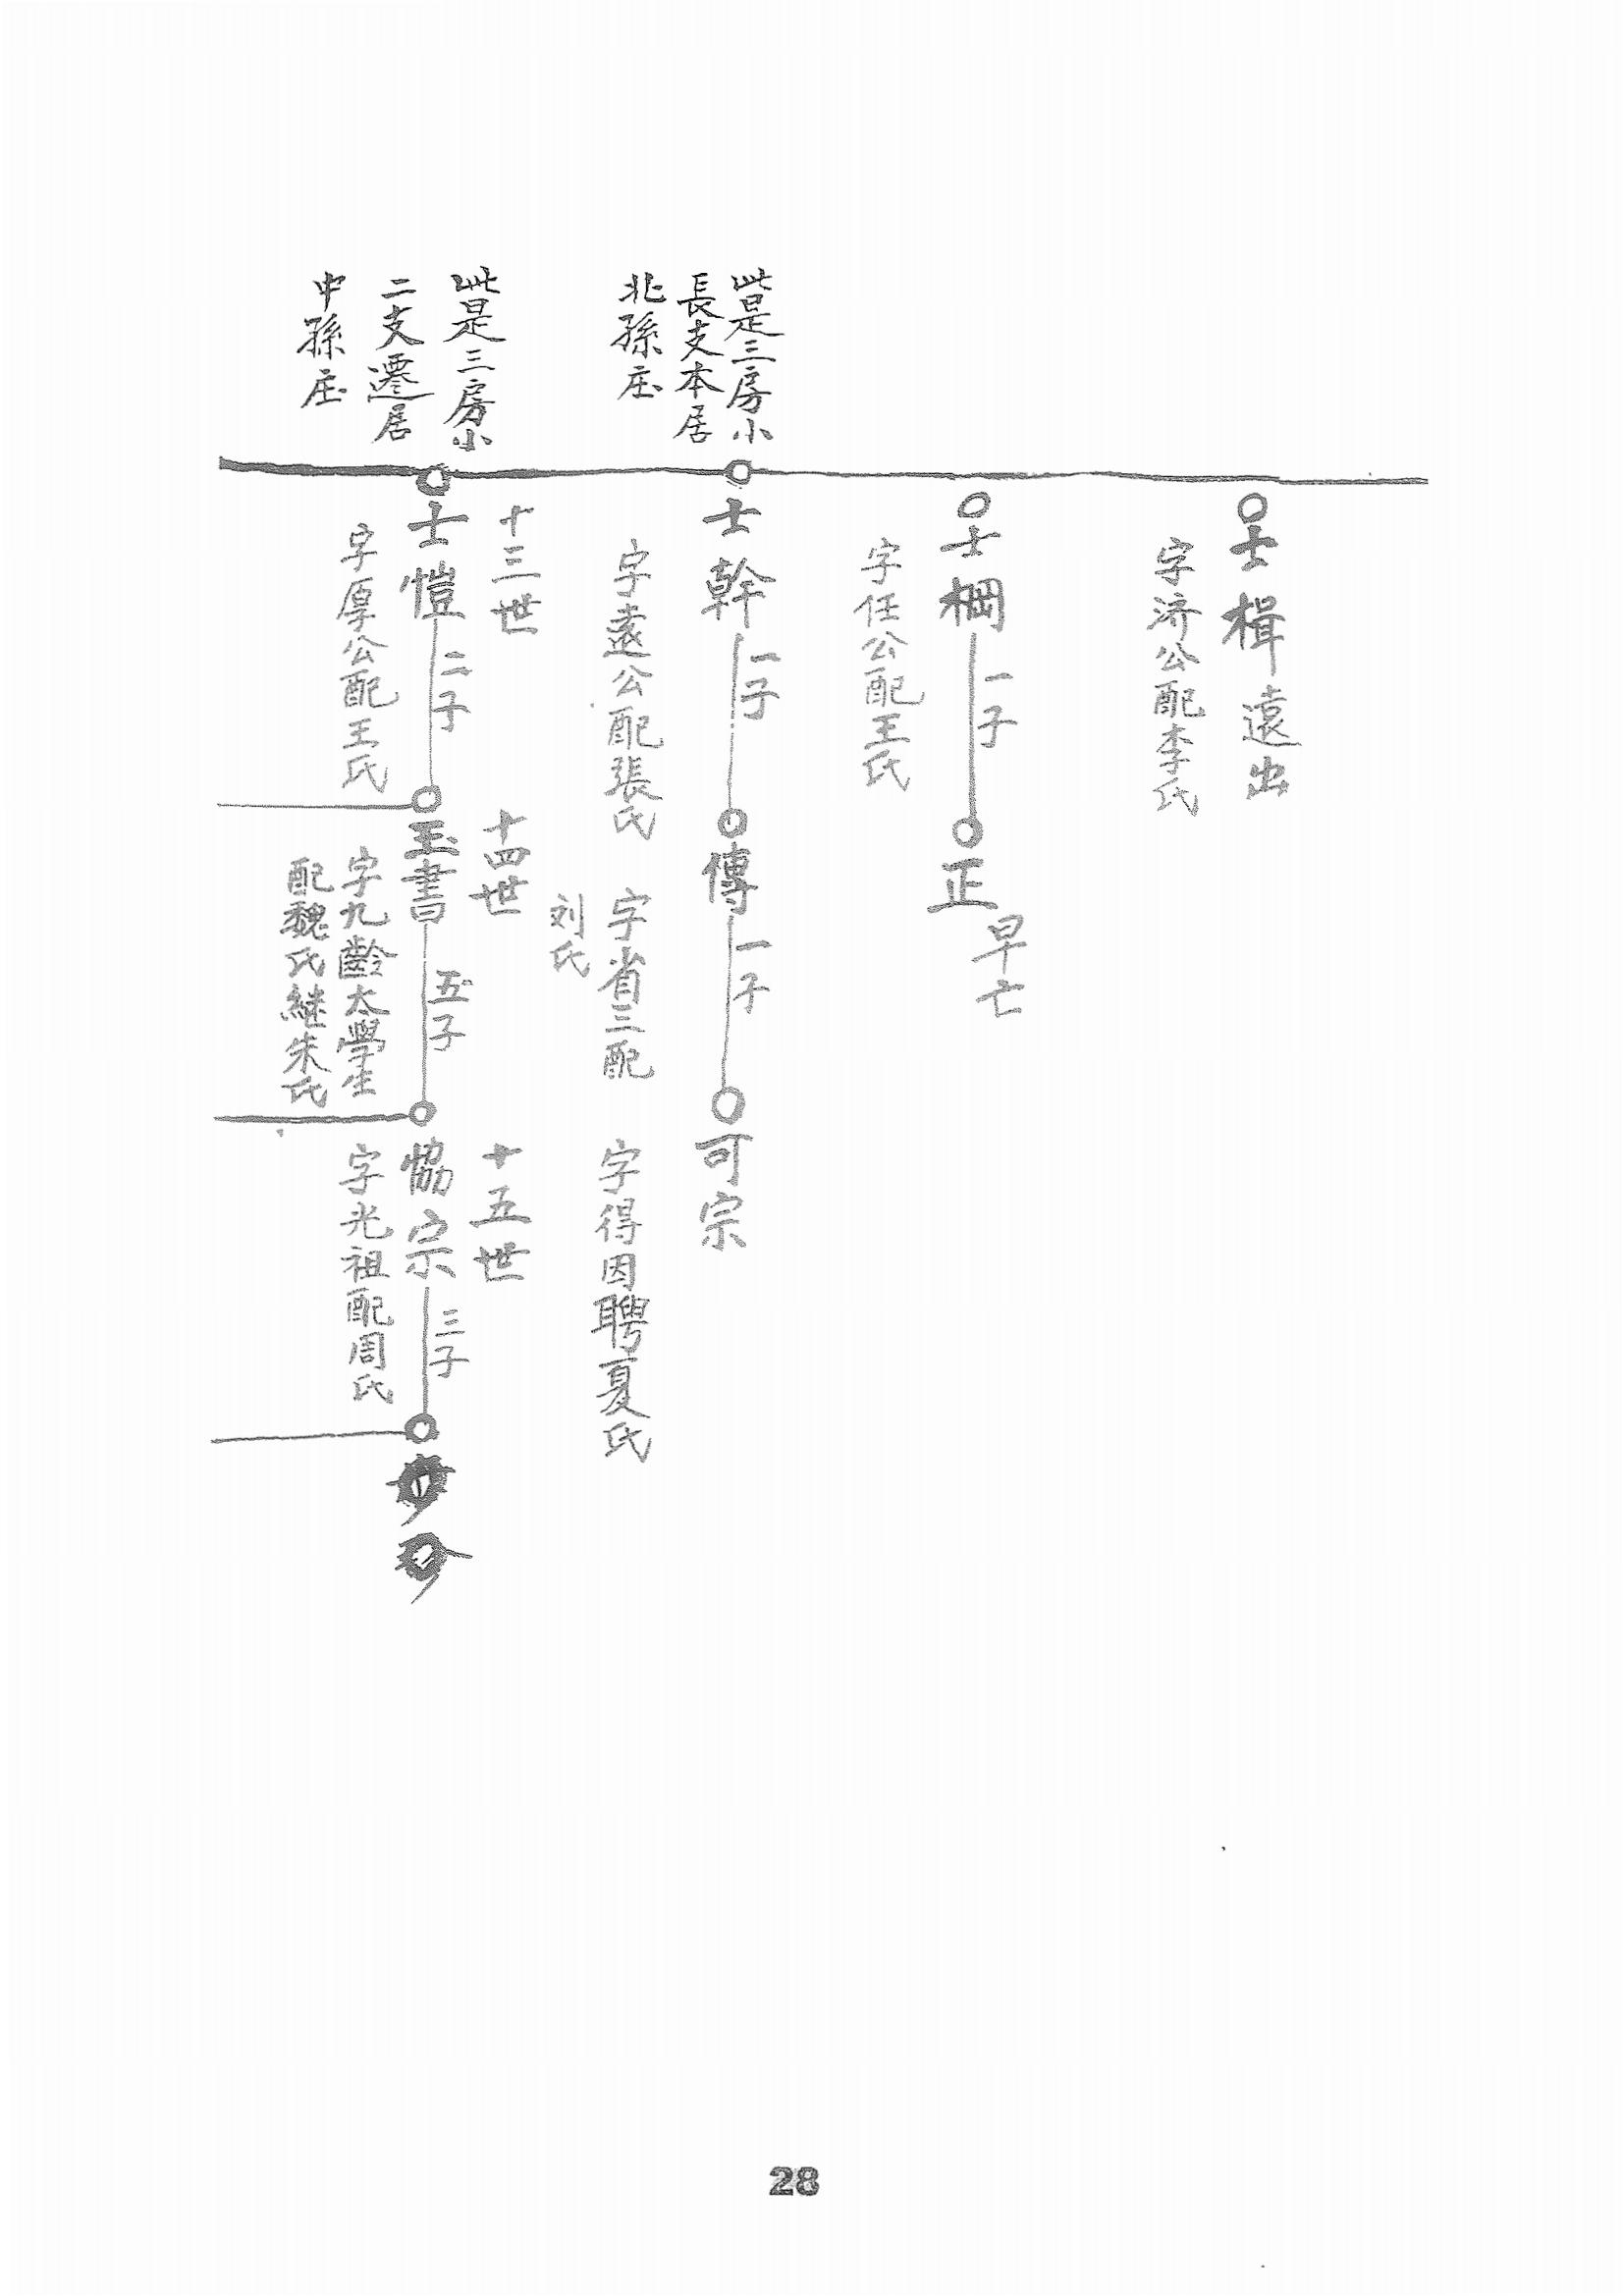 士楫遠出
字济公配李氏
士棡
一子
字任公配王氏
正
早亡
此是三房小
長支本居
北孫庄
士幹
一子
字遠公配張氏
傳
一子
字省三配
刘氏
可宗
字得因聘夏氏
此是三房小
二支遷居
中孫庄
十三世
士愷
二子
字厚公配王氏
十四世
玉書
五子
字九齡太學生
配魏氏継朱氏
十五世
恊宗
三子
字光祖配周氏
28